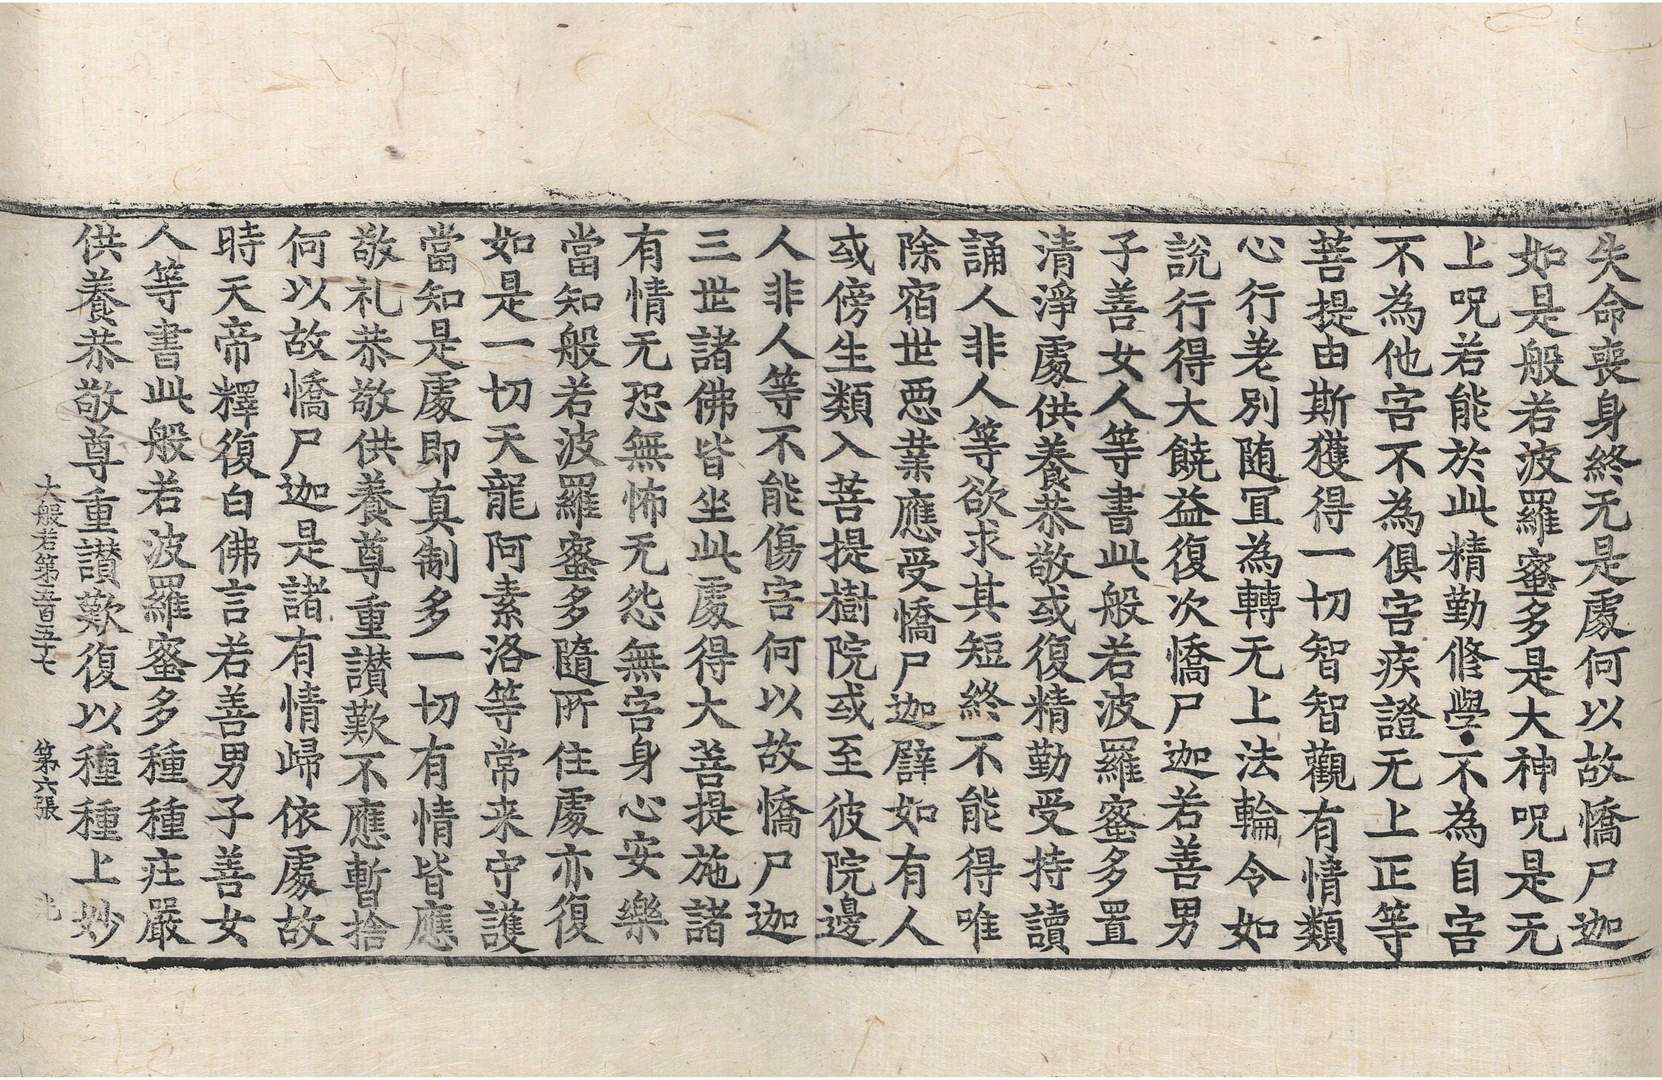 失命喪身終无是處何以故憍尸迦
如是般若波羅蜜多是大神呪是无
上呪若能於此精勤修學不為自害
不為他害不為俱害疾證无上正等
菩提由斯獲得一切智智觀有情類
心行差別随冝為轉无上法輪令如
說行得大饒益復次憍尸迦若善男
子善女人等書此般若波羅蜜多置
清淨處供養恭敬或復精勤受持讀
誦人非人等欲求其短終不能得唯
除宿世惡業應受憍尸迦譬如有人
或傍生類入菩提樹院或至彼院邊
人非人等不能傷害何以故憍尸迦
三世諸佛皆坐此處得大菩提施諸
有情无恐無怖无怨無害身心安樂
當知般若波羅蜜多隨所住處亦復
如是一切天龍阿素洛等常来守護
當知是處即真制多一切有情皆應
敬礼恭敬供養尊重讃歎不應暫捨
何以故憍尸迦是諸有情歸依處故
時天帝釋復白佛言若善男子善女
人等書此般若波羅蜜多種種莊嚴
供養恭敬尊重讃歎復以種種上妙
大般若第五百五十七 第六張